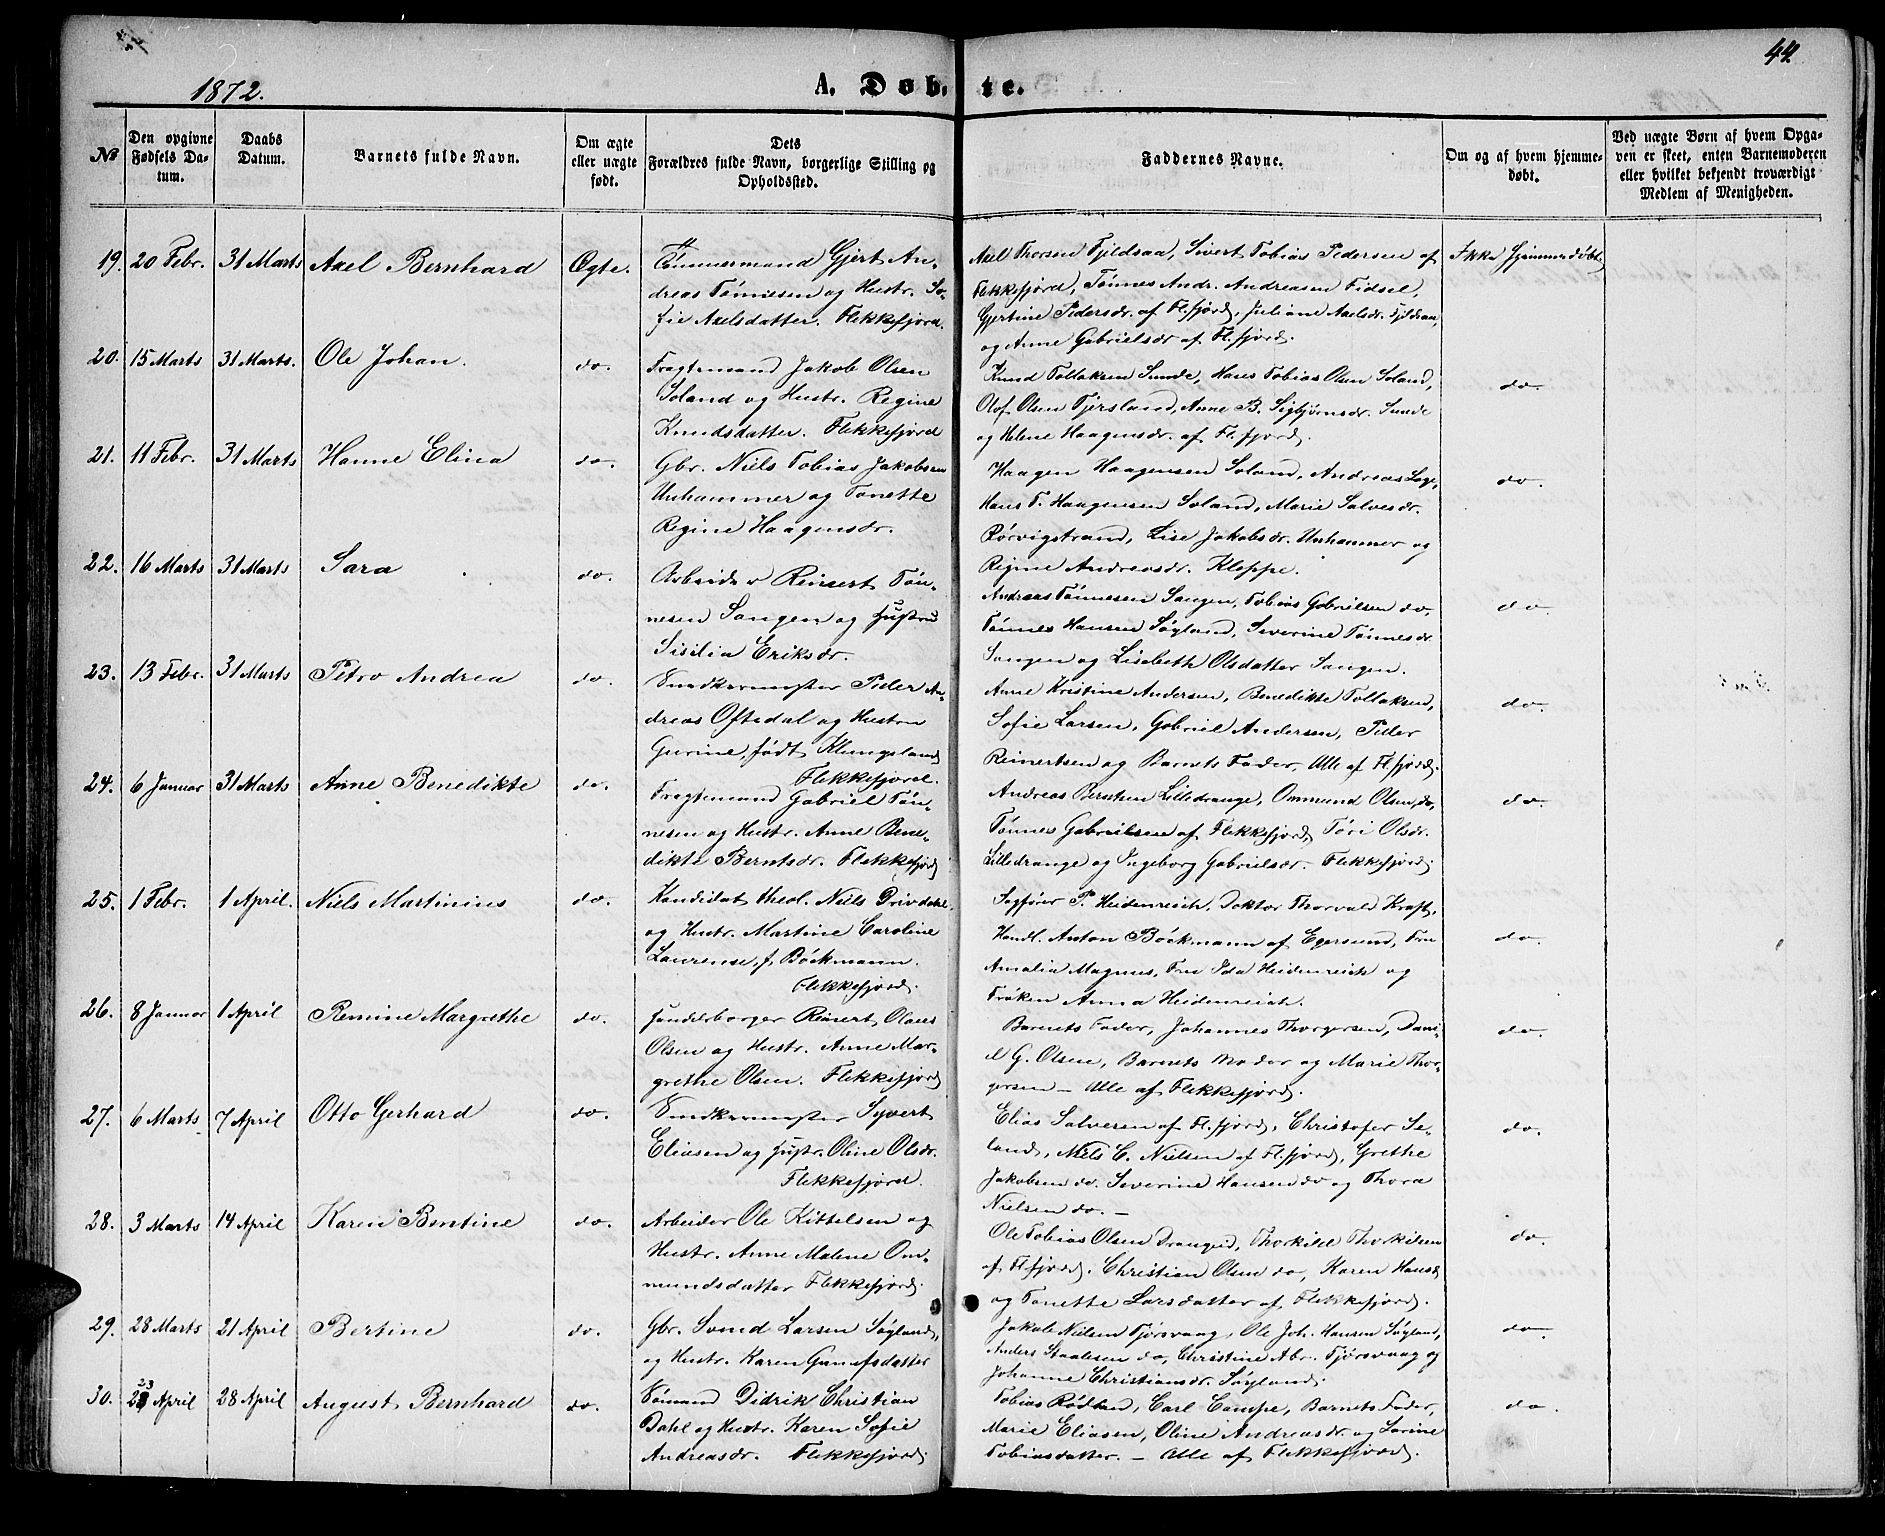 44
1872.
A. Døbte.
No
Den opgivne Fødsels Datum.
Daabs Datum.
Barnets fulde Navn.
Om ægte eller uægte født.
Dets Forældres fulde Navn, borgerlige Stilling og Opholdssted.
Faddernes Navne.
Om og af hvem hjemmedøbt.
Ved uægte Børn af hvem Opgaven er skeet, enten Barnemoderen eller hvilket bekjendt troværdigt Medlem af Menigheden.
19. 20 Febr. 31 Marts Axel Bernhard Ægte.
Tømmermand Gjert An-
dreas Tønnesen og Hustr. So-
fie Axelsdatter. Flekkefjord.
Axel Thorsen Fjeldsaa, Sivert Tobias Pedersen af
Flekkefjord, Tønnes Andr. Andreasen Fidsel,
Gjertine Pedersdr. af Fl.fjord, Juliane Axelsdr. Fjeldsaa,
og Anne Gabrielsdr af Fl.fjord.
Ikke hjemmedøbt
20. 15 Marts 31 Marts. Ole Johan. do.
Fragtemand Jakob Olsen
Soland og Hustr. Regine
Knudsdatter. Flekkefjord
Knud Tollaksen Sunde, Hans Tobias Olsen Soland,
Olof Olsen Fjersland, Anne B. Sigbjørnsdr. Sunde
og Helene Haagensdr. af Fl.fjord.
do.
21. 11 Febr. 31 Marts Hanne Elina do.
Gbr. Niels Tobias Jakobsen
Unhammer og Tonette
Regine Haagensdr.
Haagen Haagensen Soland, Andreas Loge,
Hans T. Haagensen Soland, Marie Salvesdr.
Rørvigstrand, Lise Jakobsdr. Unhammer og
Regine Andreasdr. Kleppe.
do.
22. 16 Marts 31 Marts Sara do.
Arbeider Reinert Tøn-
nesen Sangen og Hustru
Sisilia Eriksdr.
Andreas Tønnesen Sangen, Tobias Gabrielsen do,
Tønnes Hansen Søyland, Severine Tønnesdr
Sangen og Lisebeth Olsdatter Sangen.
do.
23. 13 Febr. 31 Marts Petro Andrea do.
Snedkermester Peder An-
dreas Oftedal og Hustru
Gurine, født Klungeland
Flekkefjord.
Anne Kristine Andersen, Benedikte Tollaksen,
Sofie Larsen, Gabriel Andersen, Peder
Reinertsen og Barnets Fader, Alle af Fl.fjord.
do.
24. 6 Januar 31 Marts Anne Benedikte do.
Fragtemand Gabriel Tøn-
nesen og Hustr. Anne Bene-
dikte Berntsdr. Flekkefjord
Andreas Berntsen Lilledrange, Ommund Olsen do,
Tønnes Gabrielsen af Flekkefjord, Tøri Olsdr.
Lilledrange og Ingeborg Gabrielsdr. Flekkefjord.
do.
25. 1 Febr. 1 April. Niels Martinius do.
Kandidat theol. Niels Drivdahl
og Hustr. Martine Caroline
Laurense, f. Böckmann.
Flekkefjord.
Sagfører P. Heidenreich, Doktor Thorvald Kraft,
Handl. Anton Böckmann af Egersund, Fru
Amalia Magnus, Fru Ida Heidenreich og
Frøken Anna Heidenreich.
do.
26. 8 Januar 1 April Remine Margrethe do.
Handelsborger Reinert Olaus
Olsen og Hustr. Anne Mar-
grethe Olsen. Flekkefjord
Barnets Fader, Johannes Thorgersen, Dani-
el G. Olsen, Barnets Moder og Marie Thor-
gersen — Alle af Flekkefjord.
do.
27. 6 Marts 7 April Otto Gerhard do.
Snedkermester Syvert
Eliasen og Hustr. Oline Olsdr.
Flekkefjord.
Elias Salvesen af Fl.fjord, Christofer Se-
land, Niels C. Nielsen af Fl.fjord, Grethe
Jakobsen do. Severine Hansen do og Thora
Nielsen do. —
do.
28. 3 Marts 14 April Karen Bentine do.
Arbeider Ole Kittelsen og
Hustr. Anne Malene Om-
mundsdatter Flekkefjord.
Ole Tobias Olsen Drangeid, Thorkild Thorkilsen
af Fl.fjord, Christian Olsen do, Karen Hansd
og Tonette Larsdatter af Flekkefjord.
do.
29. 28 Marts 21 April Bertine do.
Gbr. Svend Larsen Søyland,
og Hustr. Karen Gunufsdatter
Jakob Nielsen Tjørsvaag, Ole Joh. Hansen Søyland,
Anders Staalesen do, Christine Abr. Tjørsvaag og
Johanne Christiansdr. Søyland.
do.
30. 23 April 28 April August Bernhard do.
Sømand Didrik Christian
Dahl og Hustr. Karen Sofie
Andreasdr. Flekkefjord.
Tobias Rødland, Carl Campe, Barnets Fader,
Marie Eliasen, Oline Andreasdr. og Lorine
Tobiasdatter. — Alle af Flekkefjord.
do.